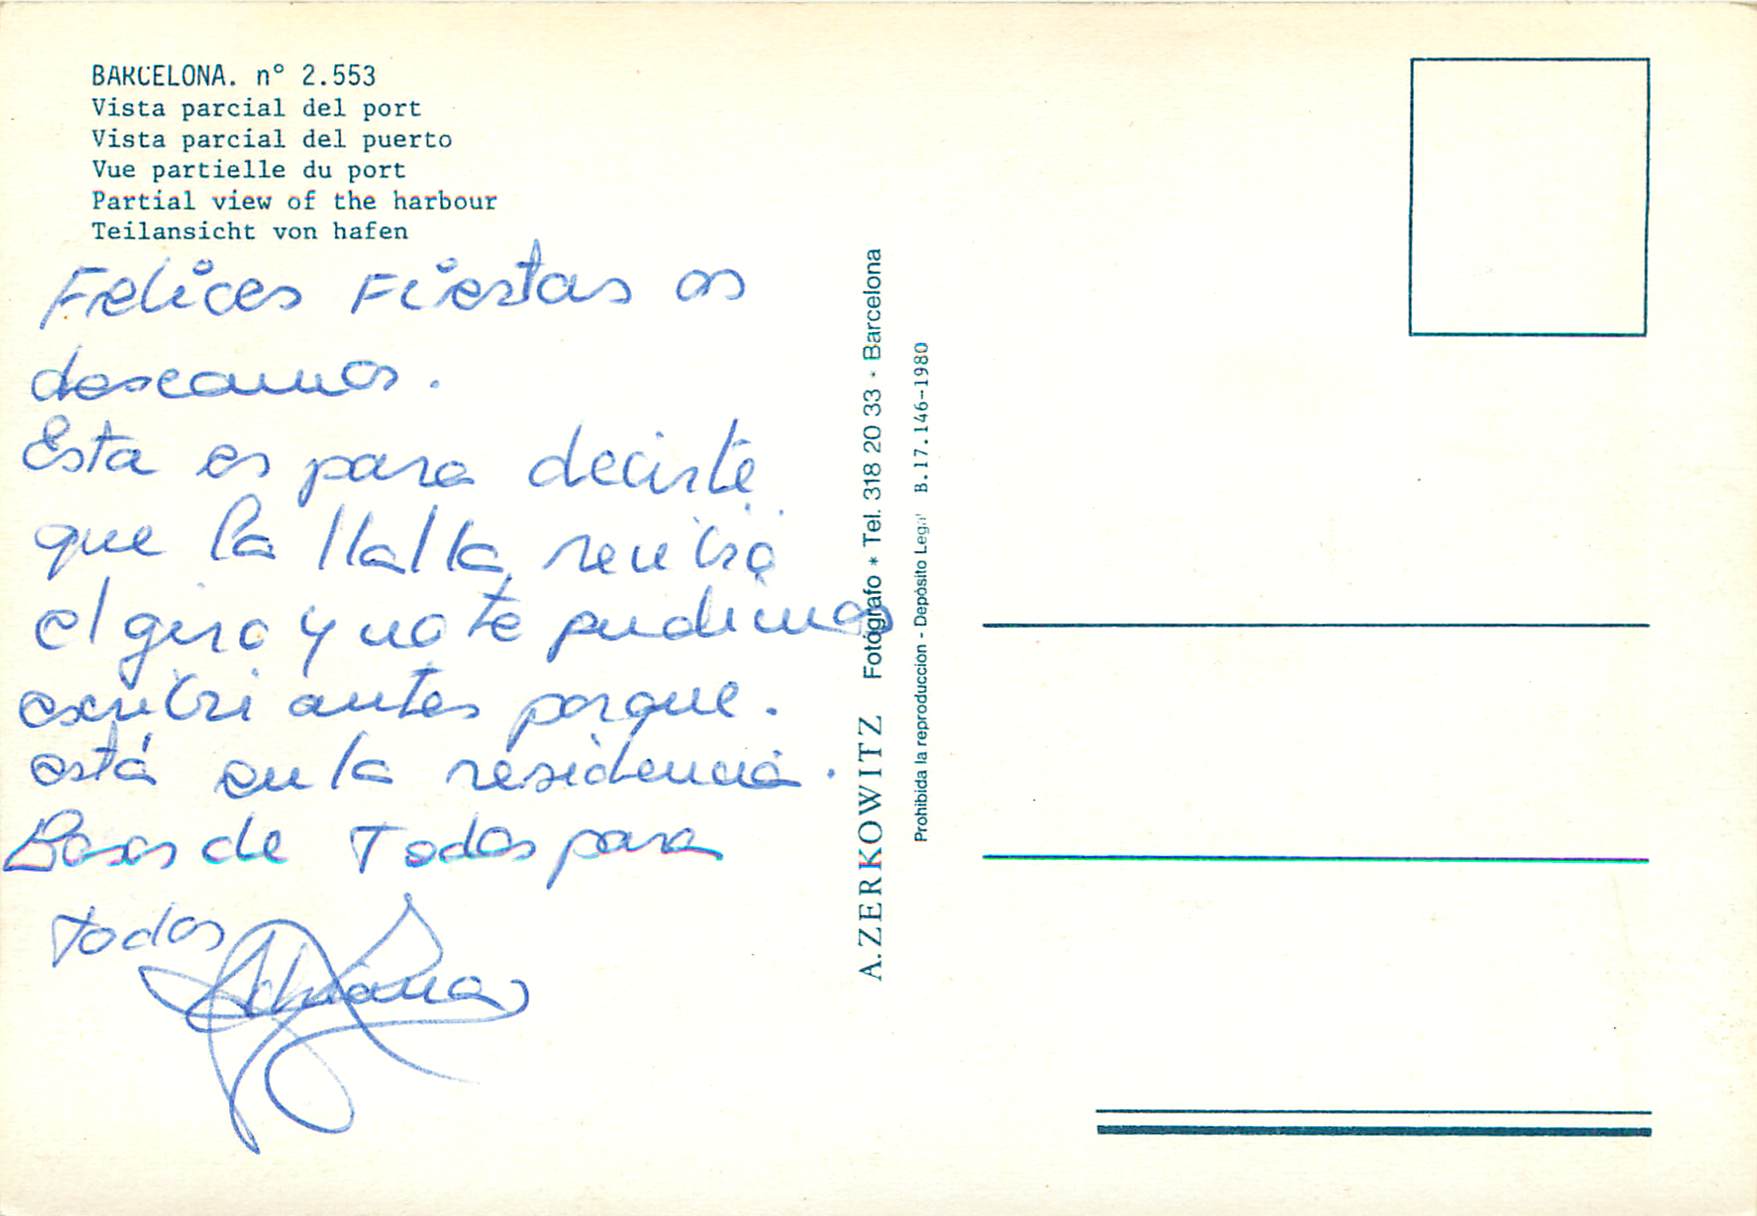 BARCELONA. nº 2.553
Vista parcial del port
Vista parcial del puerto
Vue partielle du port
Partial view of the harbour
Teilansicht von hafen
Felices Fiestas os
deseamos.
Esta es para decirte
que la
el giro y no te pudimos
escribri antes porque.
está en la residencia.
Besos de Todos para
todos
A. ZERKOWITZ Fotógrafo * Tel. 318 20 33 - Barcelona
Prohibida la reproduccion - Depósito Legal B.17.146-1980